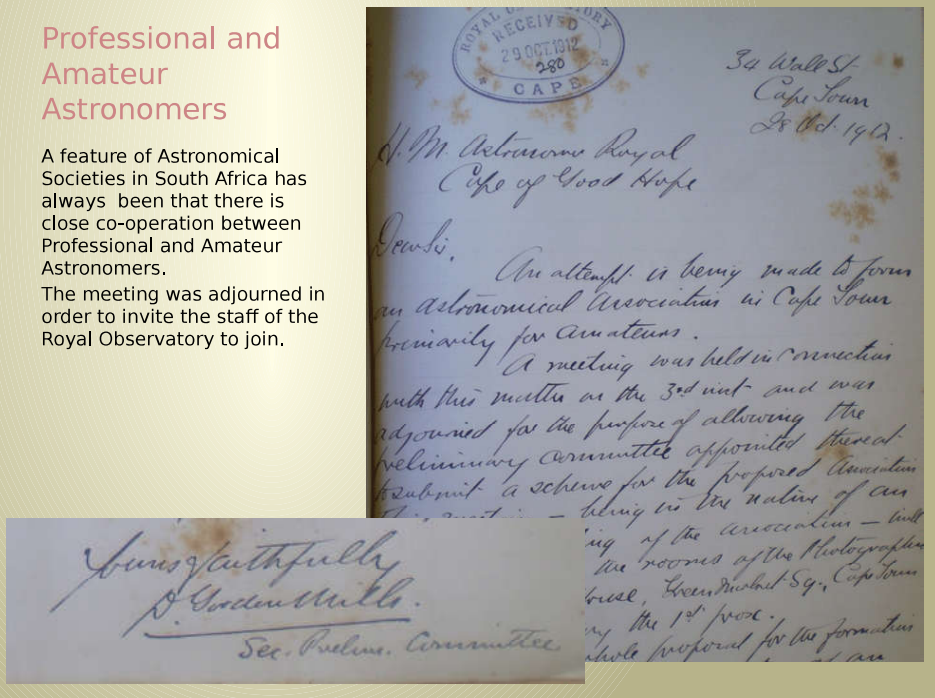 Professional and
Amateur
Astronomers
A feature of Astronomical
Societies in South Africa has
always been that there is
close co-operation between
Professional and Amateur
Astronomers.
The meeting was adjourned in
order to invite the staff of the
Royal Observatory to join.
ROYAL OBSERVATORY
RECEIVED
29 OCT. 1912
280
CAPE
34 Wall St
Cape Town
28 Oct. 1912.
H. M. Astronomer Royal
Cape of Good Hope
Dear Sir,
An attempt is being made to form
an Astronomical Association in Cape Town
primarily for amateurs.
A meeting was held in connection
with this matter on the 3rd inst and was
adjourned for the purpose of allowing the
preliminary Committee appointed thereat
to submit a scheme for the proposed Association
This meeting – being in the nature of an
ing of the association – will
the rooms of the Photographic
House, Greenmarket Sq., Cape Town
the 1st prox.
whole proposal for the formation
of an
Yours faithfully
D. Gordon Mills.
Sec. Prelim. Committee